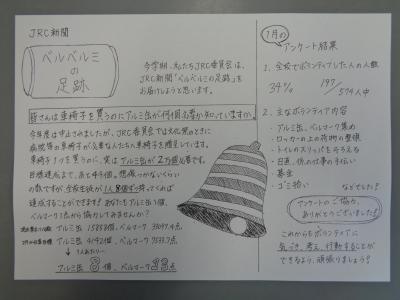 JRC新聞
ベルベルミの足跡
今学期、私たちJRC委員会は、
JRC新聞「ベルベルミの足跡」を
お届けしようと思います。
皆さんは車椅子を買うのにアルミ缶が何個必要か知っていますか。
今年度は中止されましたが、JRC委員会では文化祭のときに
病院等の車椅子が必要な人たちへ車椅子を贈呈しています。
車椅子1つを買うのに、実はアルミ缶が2万個必要です。
目標達成まで、あと
の数ですが、全校生徒が1人8個ずつ持ってくれば
達成することができます!あなたもアルミ缶1個、
ベルマーク1点から協力してみませんか?
アルミ缶 15858個、ベルマーク
アルミ缶 4142個、ベルマーク
1人あたり…
アルミ缶 8個、ベルマーク 33点
7月の
アンケート結果
1. 全校でボランティアした人の人数
34% 197/574人中
2. 主なボランティア内容
・アルミ缶、ベルマーク集め
・ロッカーの上の荷物の整頓
・トイルのスリッパをそろえる
・日直、係の仕事の手伝い
・募金
・ゴミ拾い
などでした!
アンケートのご協力、
ありがとうございました!
これからもボランティアに
気づき、考え、行動することが
できるよう、頑張りましょう!